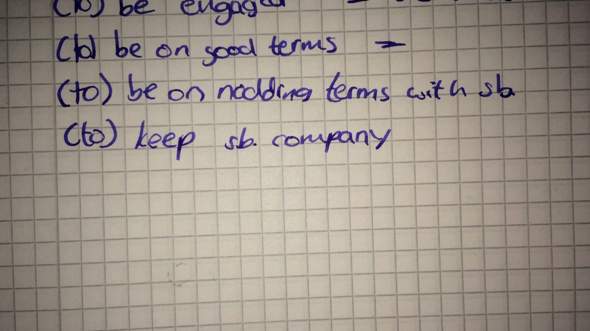 (to) be engaged
(to) be on good terms –
(to) be on nodding terms with sb.
(to) keep sb. company